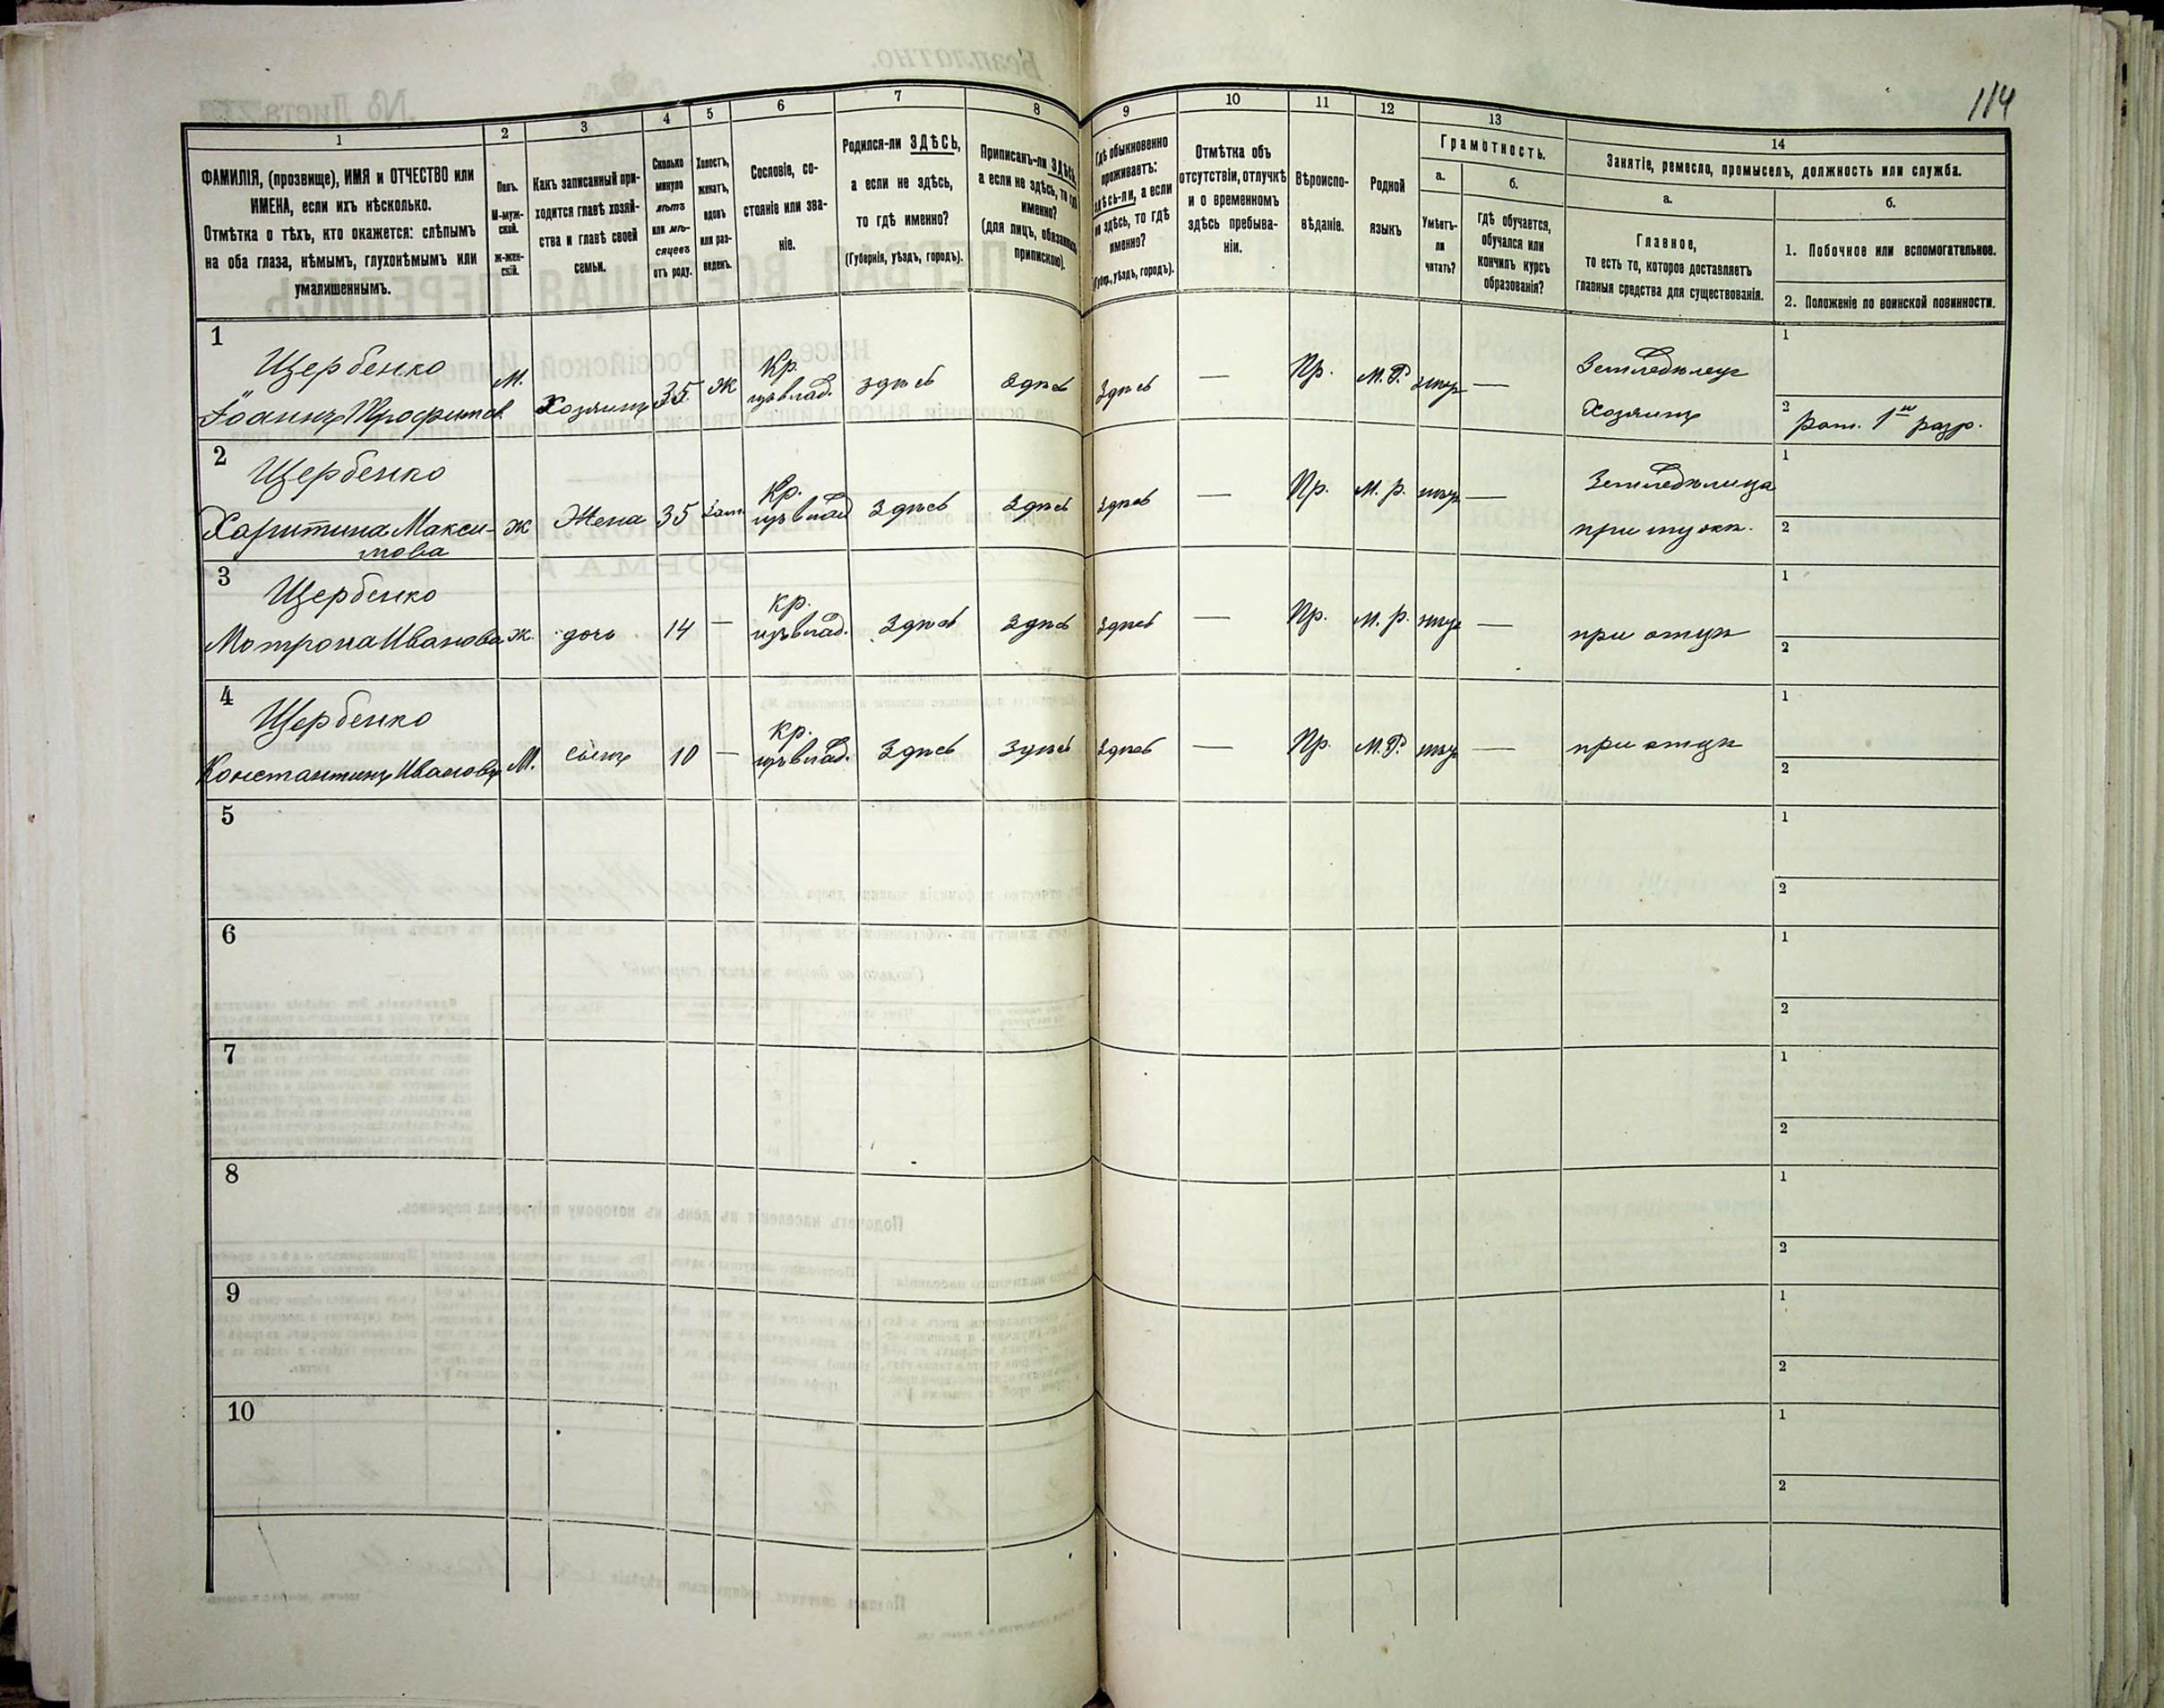 114
1
2
3
4
5
6
7
8
9
10
11
12
13
14
ФАМИЛІЯ, (прозвище), ИМЯ и ОТЧЕСТВО или
ИМЕНА, если ихъ нѣсколько.
Отмѣтка о тѣхъ, кто окажется: слѣпымъ
на оба глаза, нѣмымъ, глухонѣмымъ или
умалишеннымъ.
Полъ.
М-муж-
ской.
Ж-жен-
скій.
Какъ записанный при-
ходится главѣ хозяй-
ства и главѣ своей
семьи.
Сколько
минуло
лѣтъ
или мѣ-
сяцевъ
отъ роду.
Холостъ,
женатъ,
вдовъ
или раз-
веденъ.
Сословіе, со-
стояніе или зва-
ніе.
Родился-ли ЗДѢСЬ,
а если не здѣсь,
то гдѣ именно?
(Губернія, уѣздъ, городъ).
Приписанъ-ли ЗДѢСЬ,
а если не здѣсь, то гдѣ
именно?
(для лицъ, обязанныхъ
припискою).
Гдѣ обыкновенно
проживаетъ:
здѣсь-ли, а если
не здѣсь, то гдѣ
именно?
(Губер., уѣздъ, городъ).
Отмѣтка объ
отсутствіи, отлучкѣ
и о временномъ
здѣсь пребыва-
ніи.
Вѣроиспо-
вѣданіе.
Родной
языкъ
Грамотность.
а.
Умѣетъ-
ли
читать?
б.
Гдѣ обучается,
обучался или
кончилъ курсъ
образованія?
Занятіе, ремесло, промыселъ, должность или служба.
а.
Главное,
то есть то, которое доставляетъ
главныя средства для существованія.
б.
1. Побочное или вспомогательное.
2. Положеніе по воинской повинности.
1
Щербенко
Іоаннъ Трофимов
М.
Хозяинъ
35
Ж
Кр.
изъ влад.
здѣсь
здѣсь
здѣсь
—
Пр.
М.Р.
—
Земледѣлецъ
Хозяинъ
1
2
рат. 1го разр.
2
Щербенко
Харитина Макси-
мова
ж
Жена
35
Зам.
Кр.
изъ влад
здѣсь
здѣсь
здѣсь
—
Пр.
М. р.
—
Земледѣлица
при мужѣ.
1
2
3
Щербенко
Мотрона Иванова
ж.
дочь
14
—
кр.
изъ влад.
здѣсь
здѣсь
здѣсь
—
Пр.
М. р.
—
при отцѣ
1
2
4
Щербенко
Константинъ Ивановъ
М.
сынъ
10
—
кр.
изъ влад.
здѣсь
здѣсь
здѣсь
—
Пр.
М.Р.
—
при отцѣ
1
2
5
1
2
6
1
2
7
1
2
8
1
2
9
1
2
10
1
2